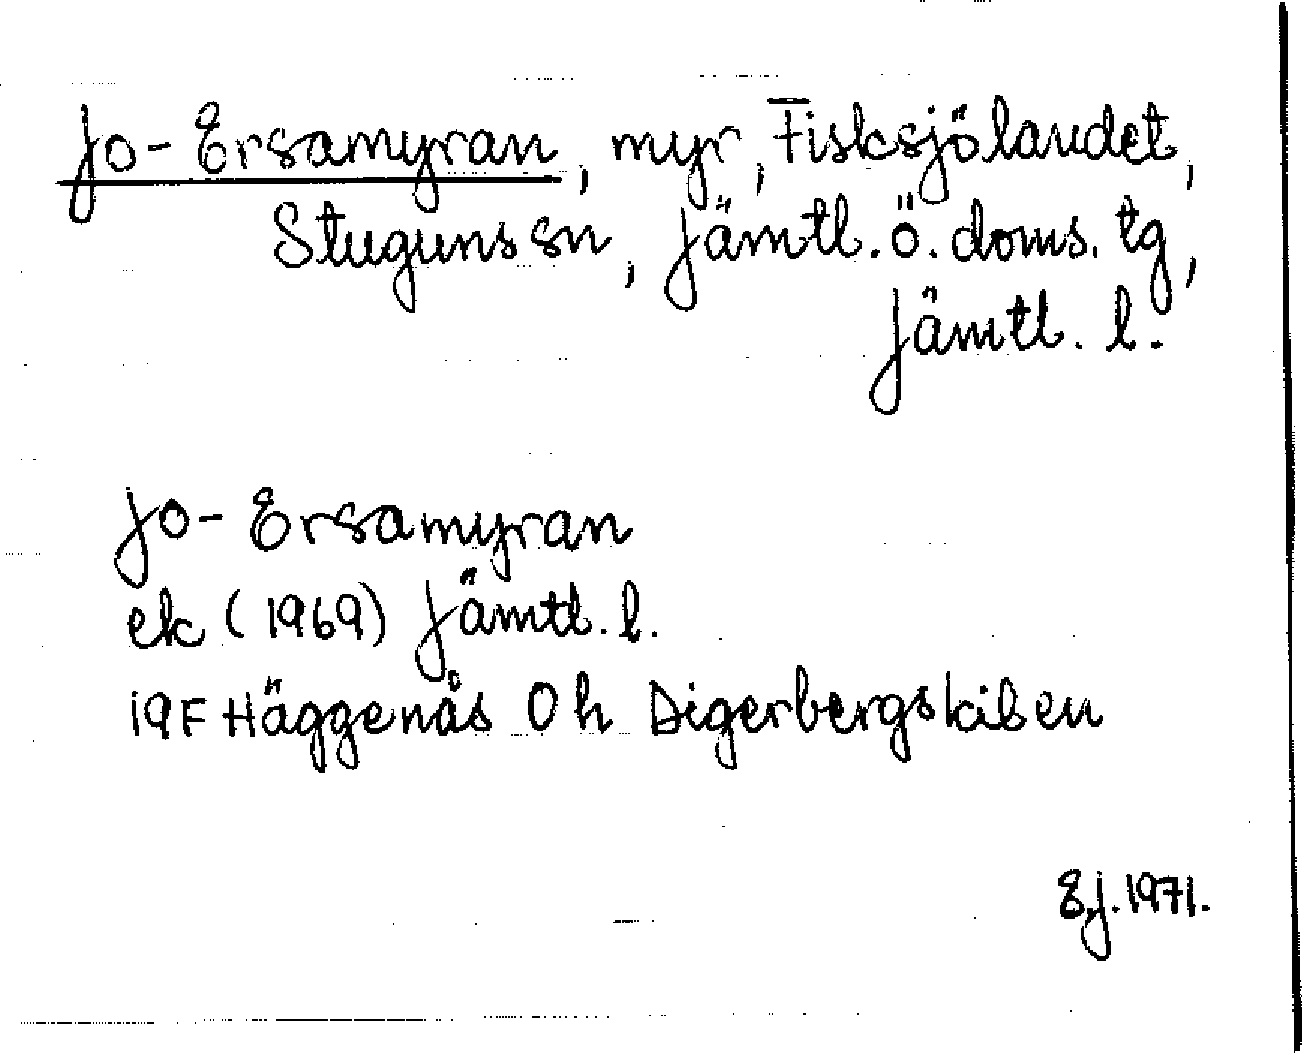 Jo-Ersamyran, myr, Fisksjölandet,
Stuguns sn, Jämtl. ö. doms. tg,
Jämtl. l.
Jo-Ersamyran
ek (1969) Jämtl. l.
19F Häggenås 0h Digerbergskilen
E.j. 1971.